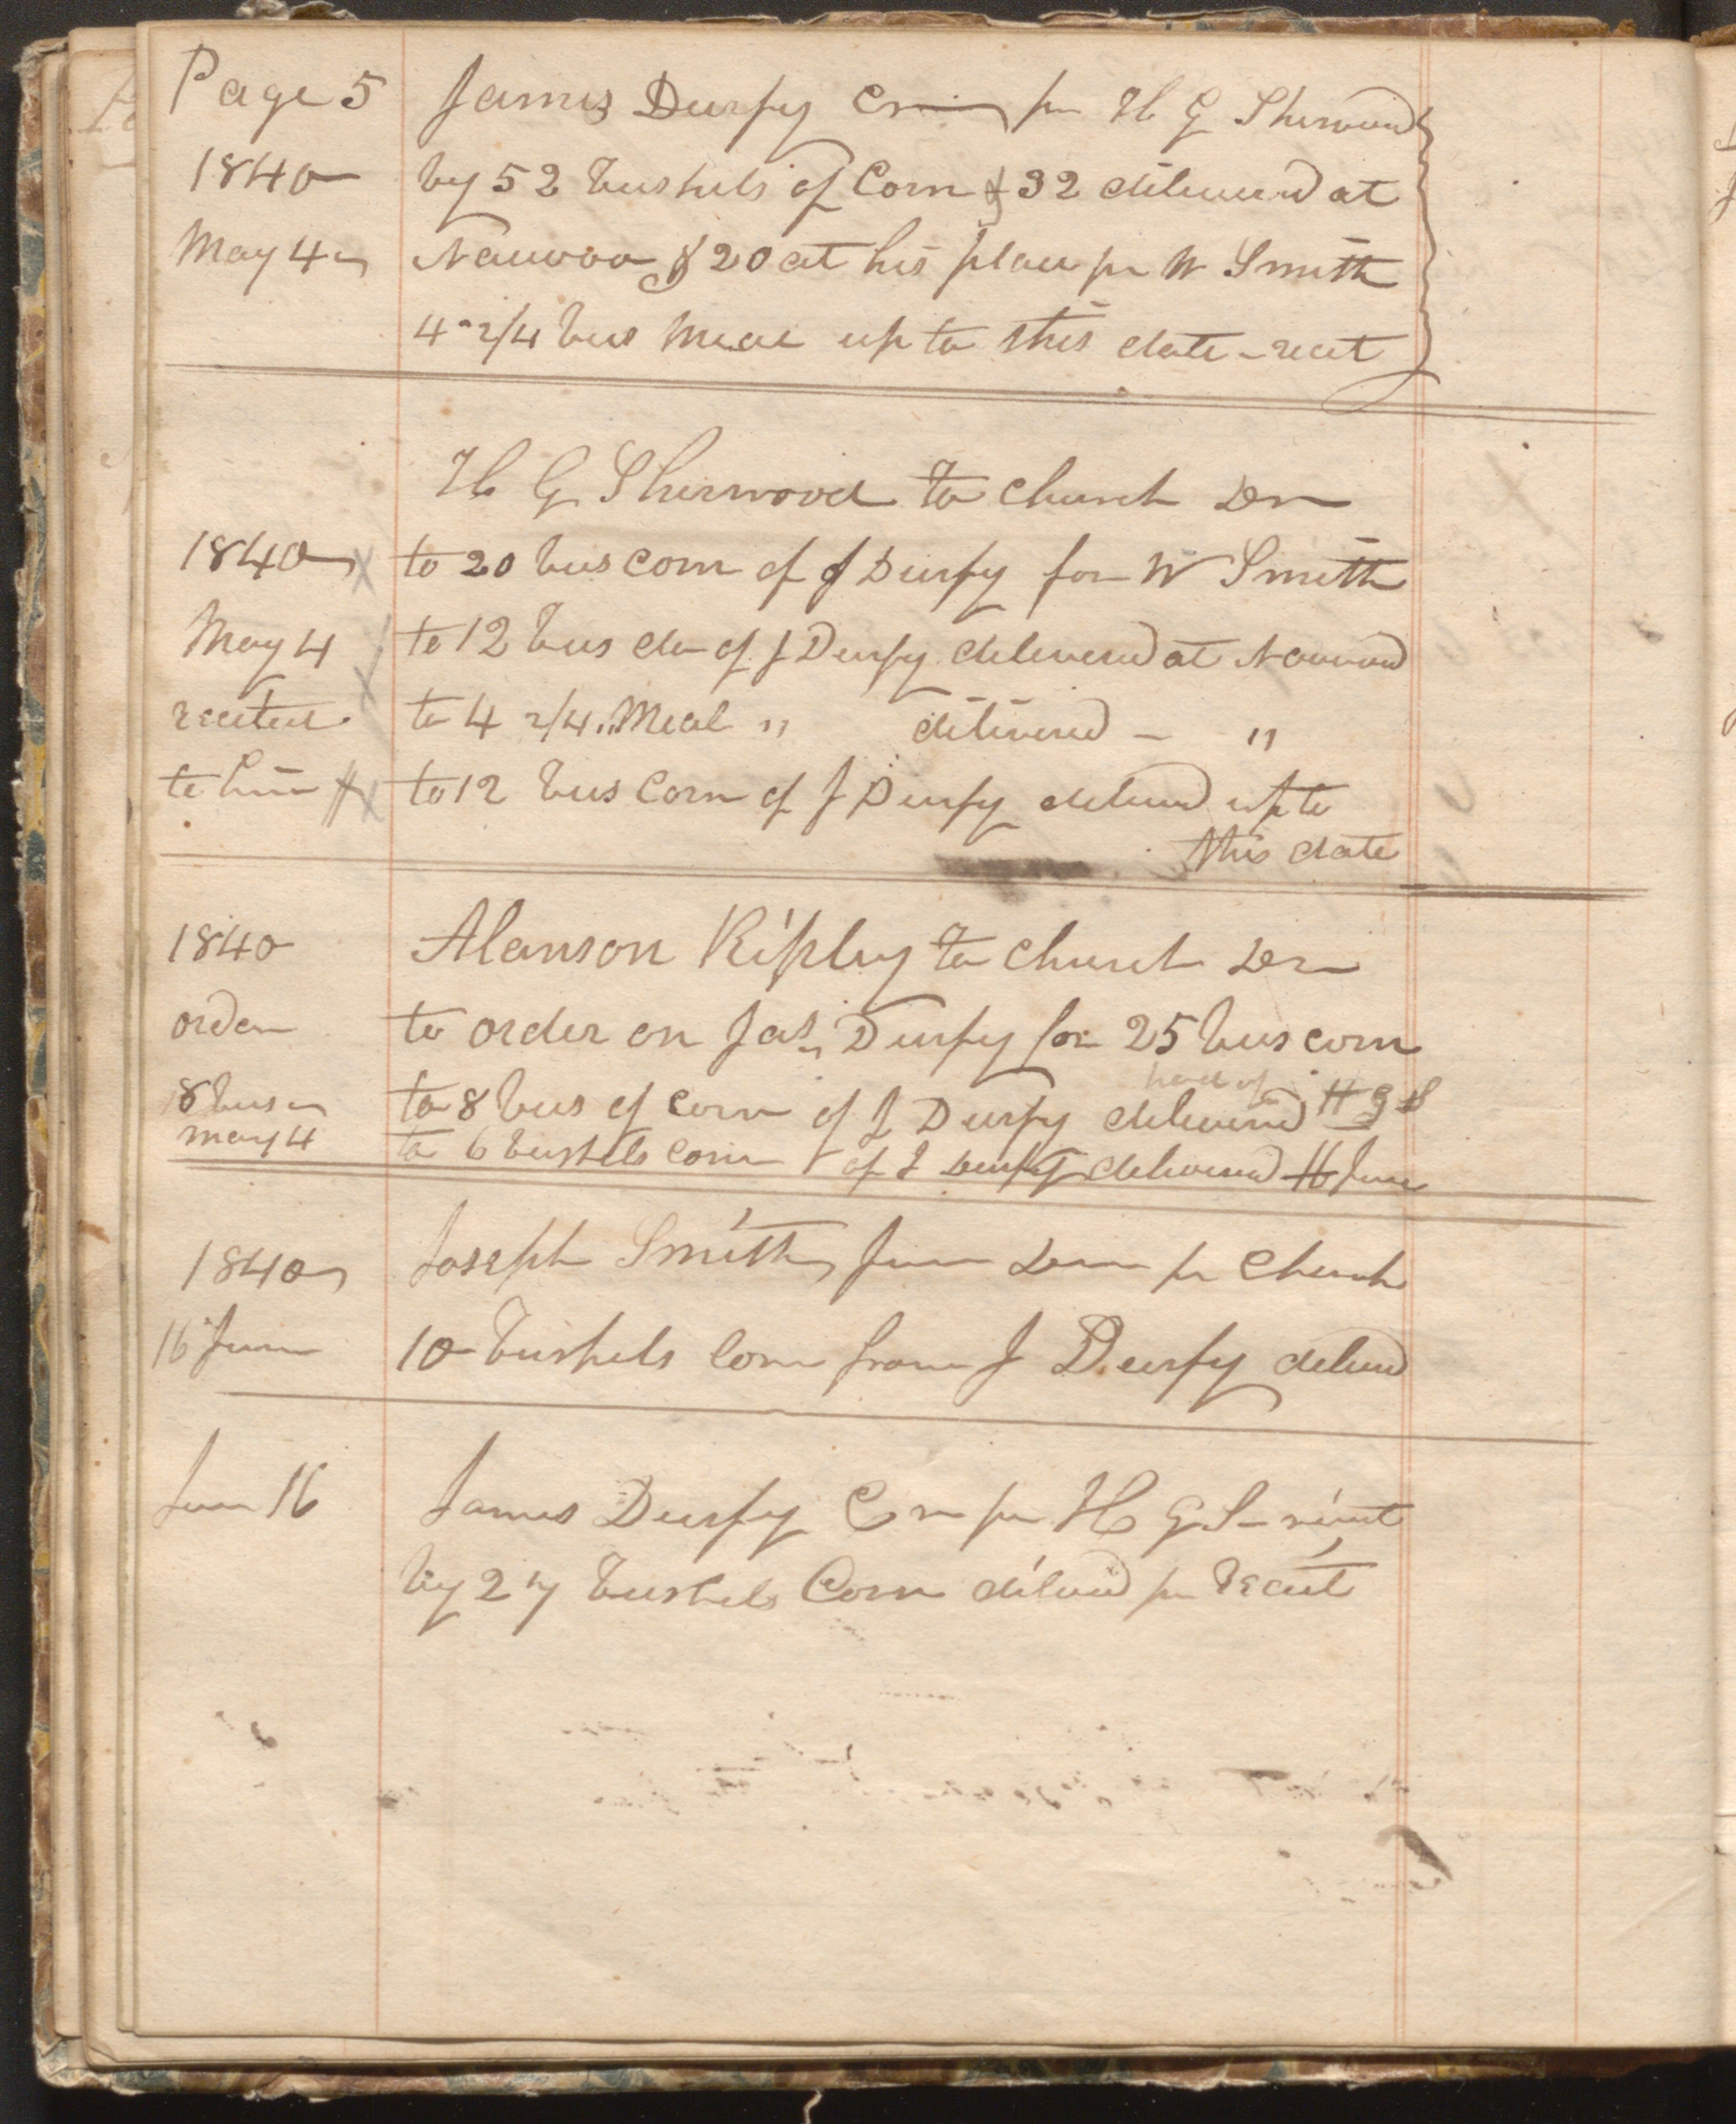 Page 5 James Durfy Cr pr H G Sherwood
1840 by 52 bushels of Corn & 32 delivered at
May 4 Nauvoo & 20 at his place pr W Smith
4 2/4 bus Meal up to this date - recit
H G Sherwood to Church Dr
1840 X to 20 bus corn of J Durfy for W Smith
May 4 to 12 bus do of J Durfy delivered at Nauvoo
to 4 2/4 " Meal " delivered - "
to him X to 12 bus Corn of J Durfy delivd up to
this date
1840 Alanson Ripley to Church Dr
order to order on Jas. Durfy for 25 bus corn
had of
8 bus to 8 bus of corn of J Durfy delivered H G S
may 4 to 6 bushels corn of J Durfy delivered 16 June
1840 Joseph Smith Jun Dr pr Church
16 June 10 bushels Corn from J Durfy delivd
June 16 James Durfy Cr pr H G S
by 27 bushels Corn delivd pr recit